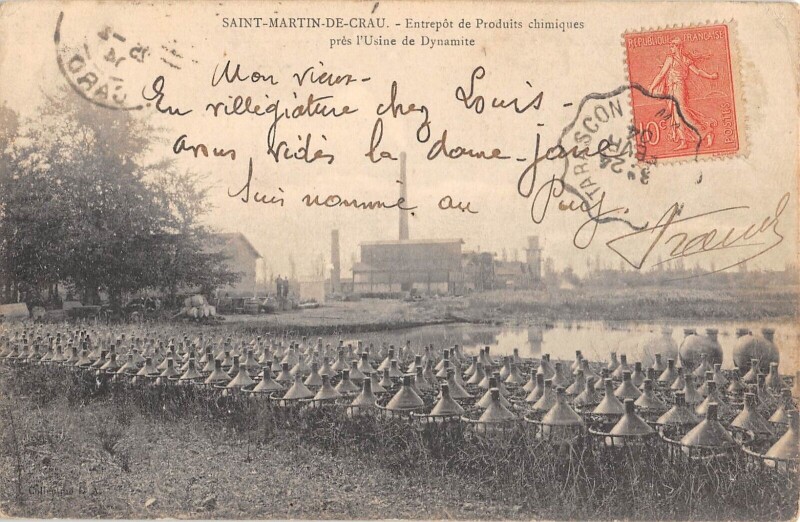 SAINT-MARTIN-DE-CRAU. - Entrepôt de Produits chimiques
près l'Usine de Dynamite
REPUBLIQUE FRANÇAISE
10c POSTES
TARASCON
CRAU
Mon vieux -
En villégiature chez Louis -
avons vidés la dame-jeanne
Suis nommé au Puy